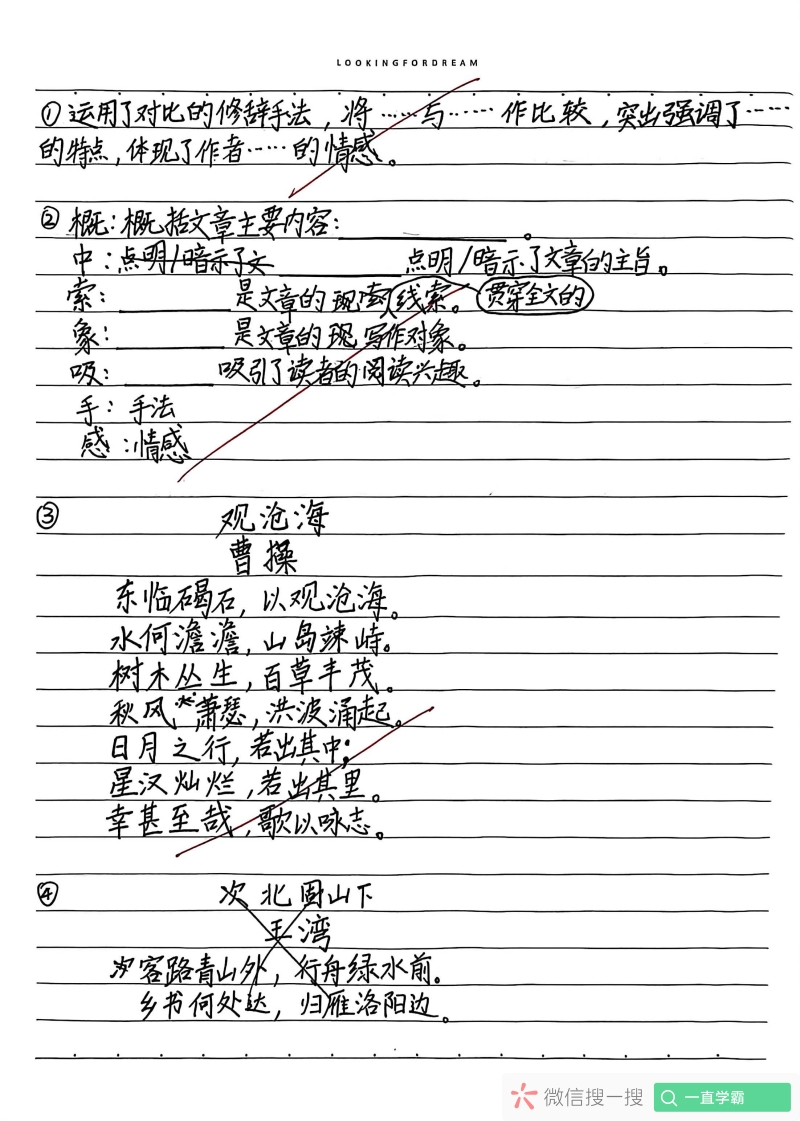 LOOKINGFORDREAM
①运用了对比的修辞手法，将……与……作比较，突出强调了……
的特点，体现了作者……的情感。
②概：概括文章主要内容：________。
中：点明/暗示了文________点明/暗示了文章的主旨。
索：________是文章的现索线索。贯穿全文的
象：________是文章的现写作对象。
吸：________吸引了读者的阅读兴趣。
手：手法
感：情感
③ 观沧海
曹操
东临碣石，以观沧海。
水何澹澹，山岛竦峙。
树木丛生，百草丰茂。
秋风萧瑟，洪波涌起。
日月之行，若出其中；
星汉灿烂，若出其里。
幸甚至哉，歌以咏志。
④ 次北固山下
王湾
客路青山外，行舟绿水前。
乡书何处达，归雁洛阳边。
微信搜一搜 一直学霸